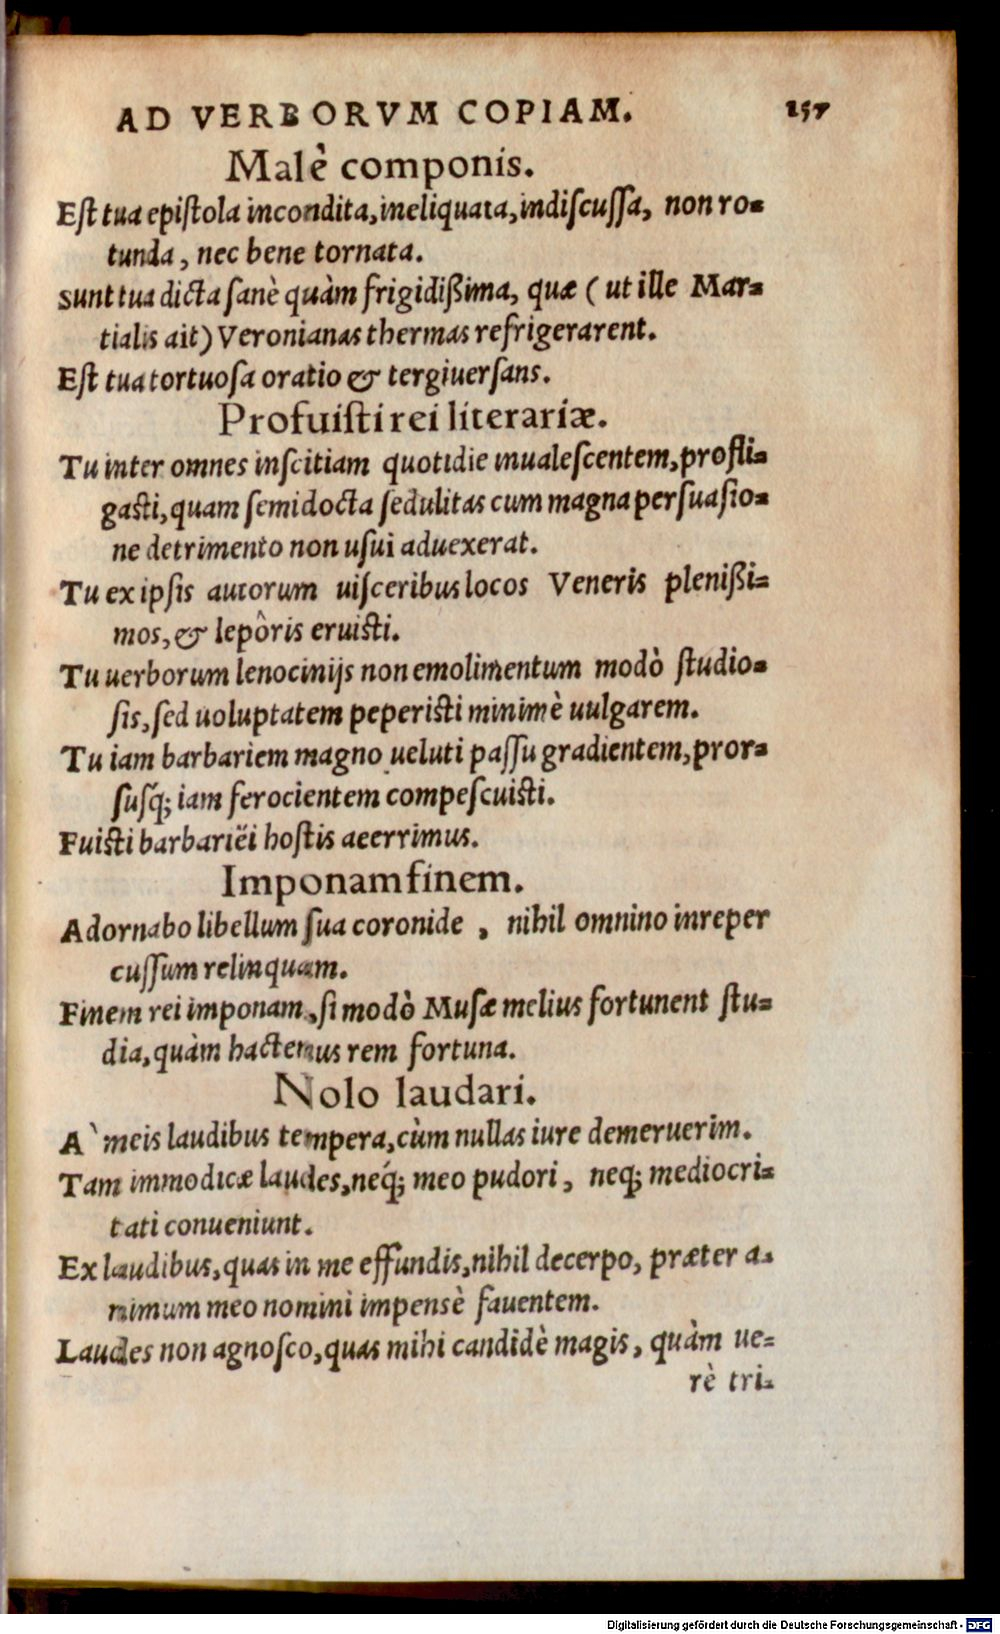 AD VERBORVM COPIAM. 157
Malè componis.
Est tua epistola incondita, ineliquata, indiscussa, non ro-
tunda, nec bene tornata.
Sunt tua dicta sanè quàm frigidißima, quæ ( ut ille Mar-
tialis ait) Veronianas thermas refrigerarent.
Est tua tortuosa oratio & tergiuersans.
Profuisti rei literariæ.
Tu inter omnes inscitiam quotidie inualescentem, profli-
gasti, quam semidocta sedulitas cum magna persuasio-
ne detrimento non usui aduexerat.
Tu ex ipsis autorum uisceribus locos Veneris plenißi-
mos, & lepôris eruisti.
Tu uerborum lenocinijs non emolimentum modò studio-
sis, sed uoluptatem peperisti minimè uulgarem.
Tu iam barbariem magno ueluti passu gradientem, pror-
susq́; iam ferocientem compescuisti.
Fuisti barbariëi hostis aeerrimus.
Imponam finem.
Adornabo libellum sua coronide , nihil omnino inreper
cussum relinquam.
Finem rei imponam, si modò Musæ melius fortunent stu-
dia, quàm hactenus rem fortuna.
Nolo laudari.
A` meis laudibus tempera, cùm nullas iure demeruerim.
Tam immodicæ laudes, neq́; meo pudori, neq; mediocri-
tati conueniunt.
Ex laudibus, quas in me effundis, nihil decerpo, præter a-
nimum meo nomini impensè fauentem.
Laudes non agnosco, quas mihi candidè magis, quàm ue-
rè tri-
Digitalisierung gefördert durch die Deutsche Forschungsgemeinschaft - DFG